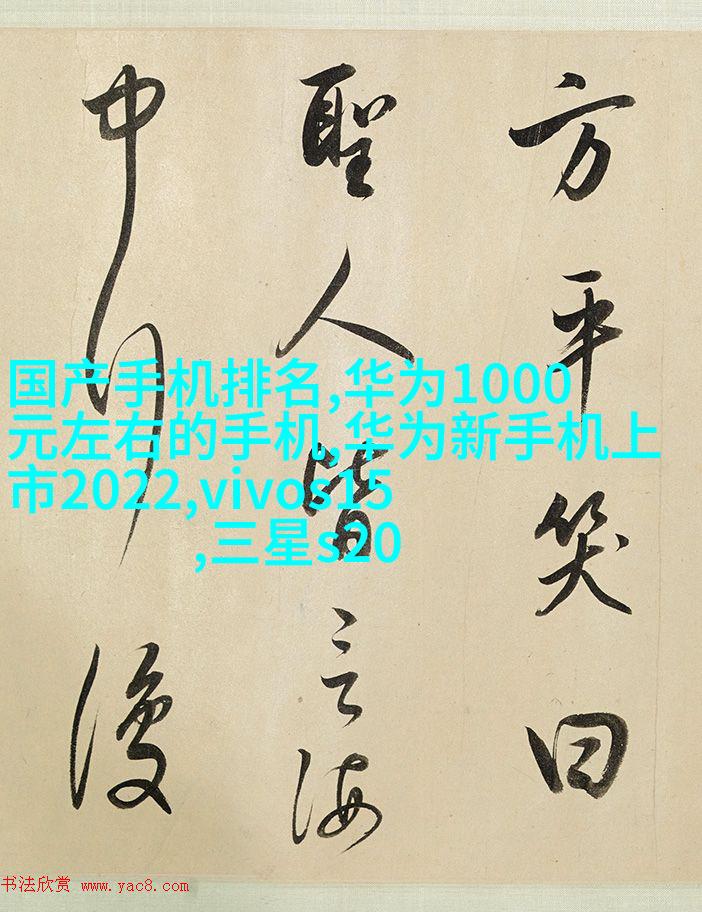 方平笑曰
聖人皆言海
中行復
国产手机排名,华为1000
元左右的手机,华为新手机上
市2022,vivos15
,三星s20
书法欣赏 www.yac8.com